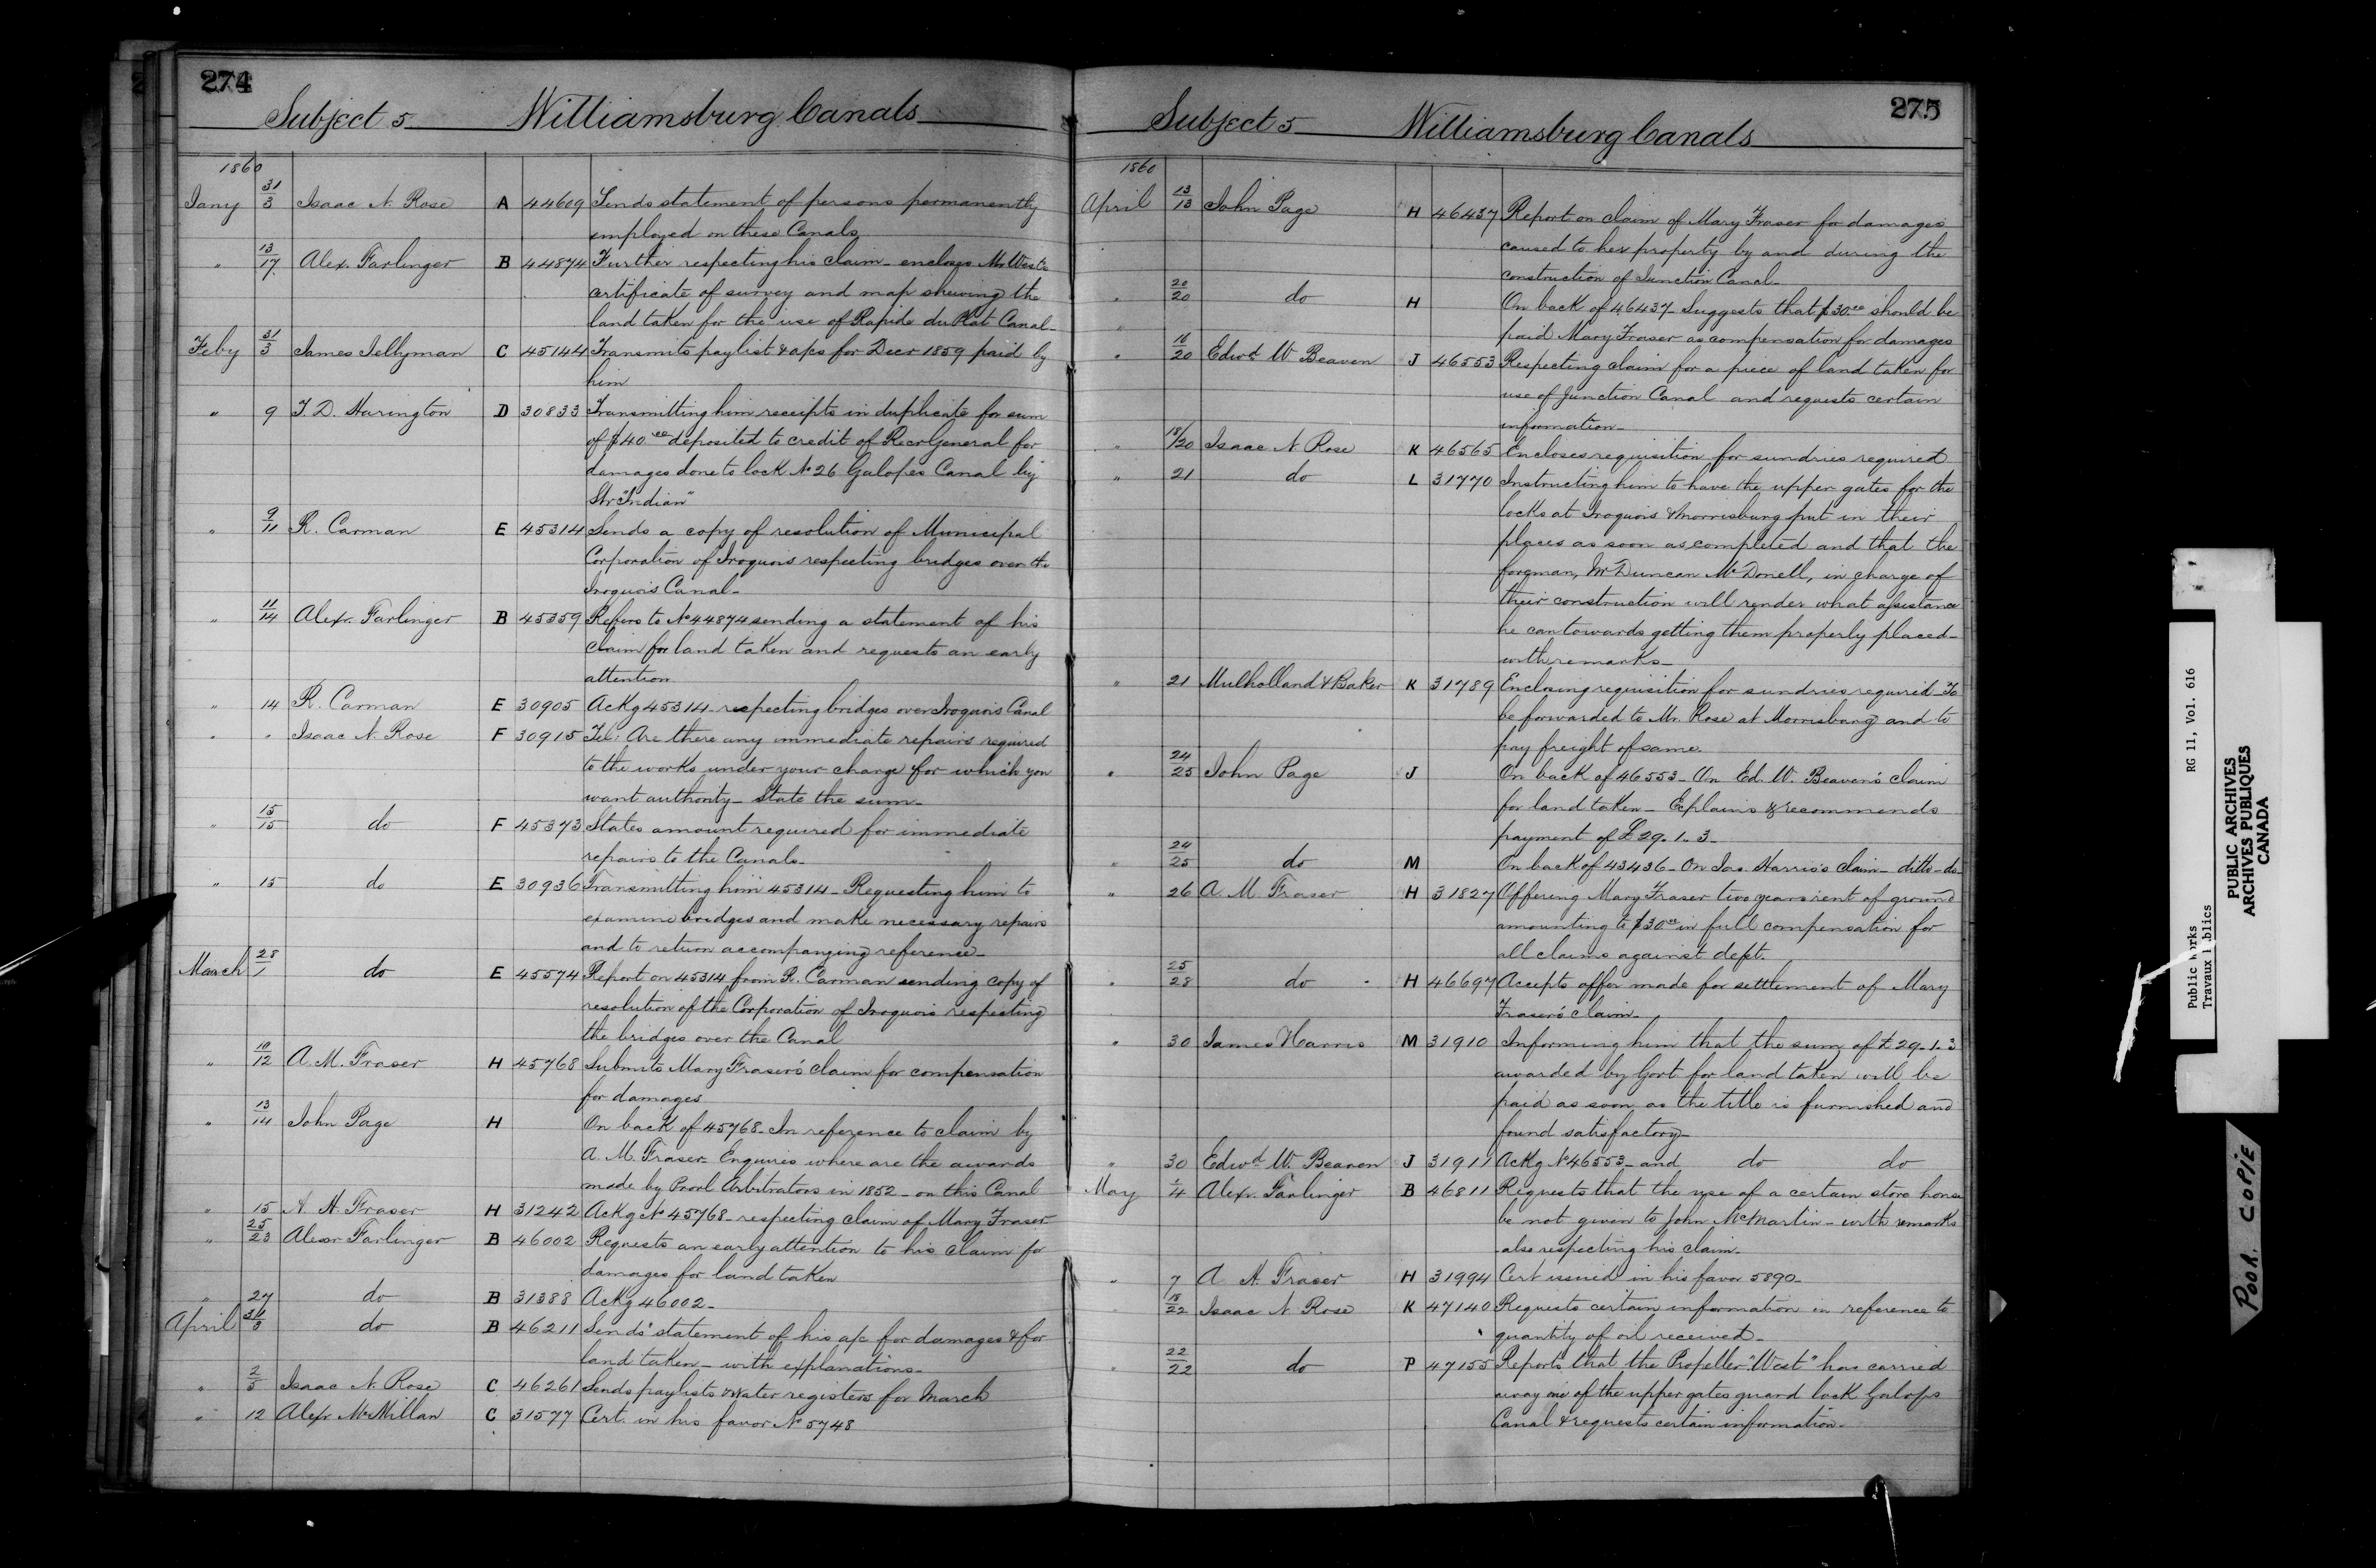 274
Subject 5 Williamsburg Canals
1860
Jany 31/3 Isaac N. Rose A 44609 Sends statement of persons permanently
employed on these Canals
" 13/17 Alex. Farlinger B 44874 Further respecting his claim - encloses Mr West's
certificate of survey and map shewing the
land taken for the use of Rapide du Plat Canal -
Feby 31/3 James Jellyman C 45144 Transmits paylist & a/cs for Decr 1859 paid by
him
" 9 T. D. Harington D 30833 Transmitting him receipts in duplicate for sum
of $40.00 deposited to credit of Recr General for
damages done to lock No 26 Galopes Canal by
Str "Indian"
" 9/11 R. Carman E 45314 Sends a copy of resolution of Municipal
Corporation of Iroquois respecting bridges over the
Iroquois Canal -
" 11/14 Alexr. Farlinger B 45359 Refers to No 44874 sending a statement of his
claim for land taken and requests an early
attention
" 14 R. Carman E 30905 Ackg 45314 - respecting bridges over Iroquois Canal
" " Isaac N. Rose F 30915 Tel: Are there any immediate repairs required
to the works under your charge for which you
want authority - State the sum -
" 15/15 do F 45373 States amount required for immediate
repairs to the Canals -
" 15 do E 30936 Transmitting him 45314 - Requesting him to
examine bridges and make necessary repairs
and to return accompanying reference -
March 28/1 do E 45574 Report on 45314 from R. Carman sending copy of
resolution of the Corporation of Iroquois respecting
the bridges over the Canal
" 10/12 A. M. Fraser H 45768 Submits Mary Fraser's claim for compensation
for damages
" 13/14 John Page H On back of 45768 - In reference to claim by
A. M. Fraser - Enquires where are the awards
made by Provl Arbitrators in 1852 - on this Canal
" 15 A. A. Fraser H 31242 Ackg No 45768 - respecting claim of Mary Fraser
" 25/23 Alexr Farlinger B 46002 Requests an early attention to his claim for
damages for land taken
" 27 do B 31388 Ackg 46002 -
April 31/3 do B 46211 Sends statement of his a/c for damages & for
land taken - with explanations -
" 2/5 Isaac N. Rose C 46261 Sends paylists & water registers for March
" 12 Alexr McMillan C 31577 Cert. in his favor No 5748
275
Subject 5 Williamsburg Canals
1860
April 13/13 John Page H 46437 Report on claim of Mary Fraser for damages
caused to her property by and during the
construction of Junction Canal -
" 20/20 do H On back of 46437 - Suggests that $30.00 should be
paid Mary Fraser as compensation for damages
" 16/20 Edwd. W Beaven J 46553 Respecting claim for a piece of land taken for
use of Junction Canal and requests certain
information -
" 18/20 Isaac N. Rose K 46565 Encloses requisition for sundries required
" 21 do L 31770 Instructing him to have the upper gates for the
locks at Iroquois & Morrisburg put in their
places as soon as completed and that the
forgman, Mr Duncan McDonell, in charge of
their construction will render what assistance
he can towards getting them properly placed -
with remarks -
" 21 Mulholland & Baker K 31789 Enclosing requisition for sundries required - To
be forwarded to Mr. Rose at Morrisburg and to
pay freight of same.
" 24/25 John Page J On back of 46553 - On Ed. W. Beaven's claim
for land taken - Explains & recommends
payment of £29. 1. 3 -
" 24/25 do M On back of 43436 - On Jas. Harris's claim - ditto - do -
" 26 A. M. Fraser H 31827 Offering Mary Fraser two years rent of ground
amounting to $30.00 in full compensation for
all claims against dept.
" 25/28 do H 46697 Accepts offer made for settlement of Mary
Fraser's claim -
" 30 James Harris M 31910 Informing him that the sum of £29. 1. 3
awarded by Govt for land taken will be
paid as soon as the title is furnished and
found satisfactory -
" 30 Edwd. W. Beaven J 31911 Ackg No 46553 - and do do
May 1/4 Alexr. Farlinger B 46811 Requests that the use of a certain store house
be not given to John McMartin - with remarks
also respecting his claim -
" 7 A A. Fraser H 31994 Cert issued in his favor 5890 -
18/22 Isaac N. Rose K 47140 Requests certain information in reference to
quantity of oil received -
" 22/22 do P 47155 Reports that the Propeller "West" has carried
away one of the upper gates guard lock Galops
Canal & requests certain information -
Public Works RG 11, Vol. 616
Travaux Publics
PUBLIC ARCHIVES
ARCHIVES PUBLIQUES
CANADA
POOR COPIE